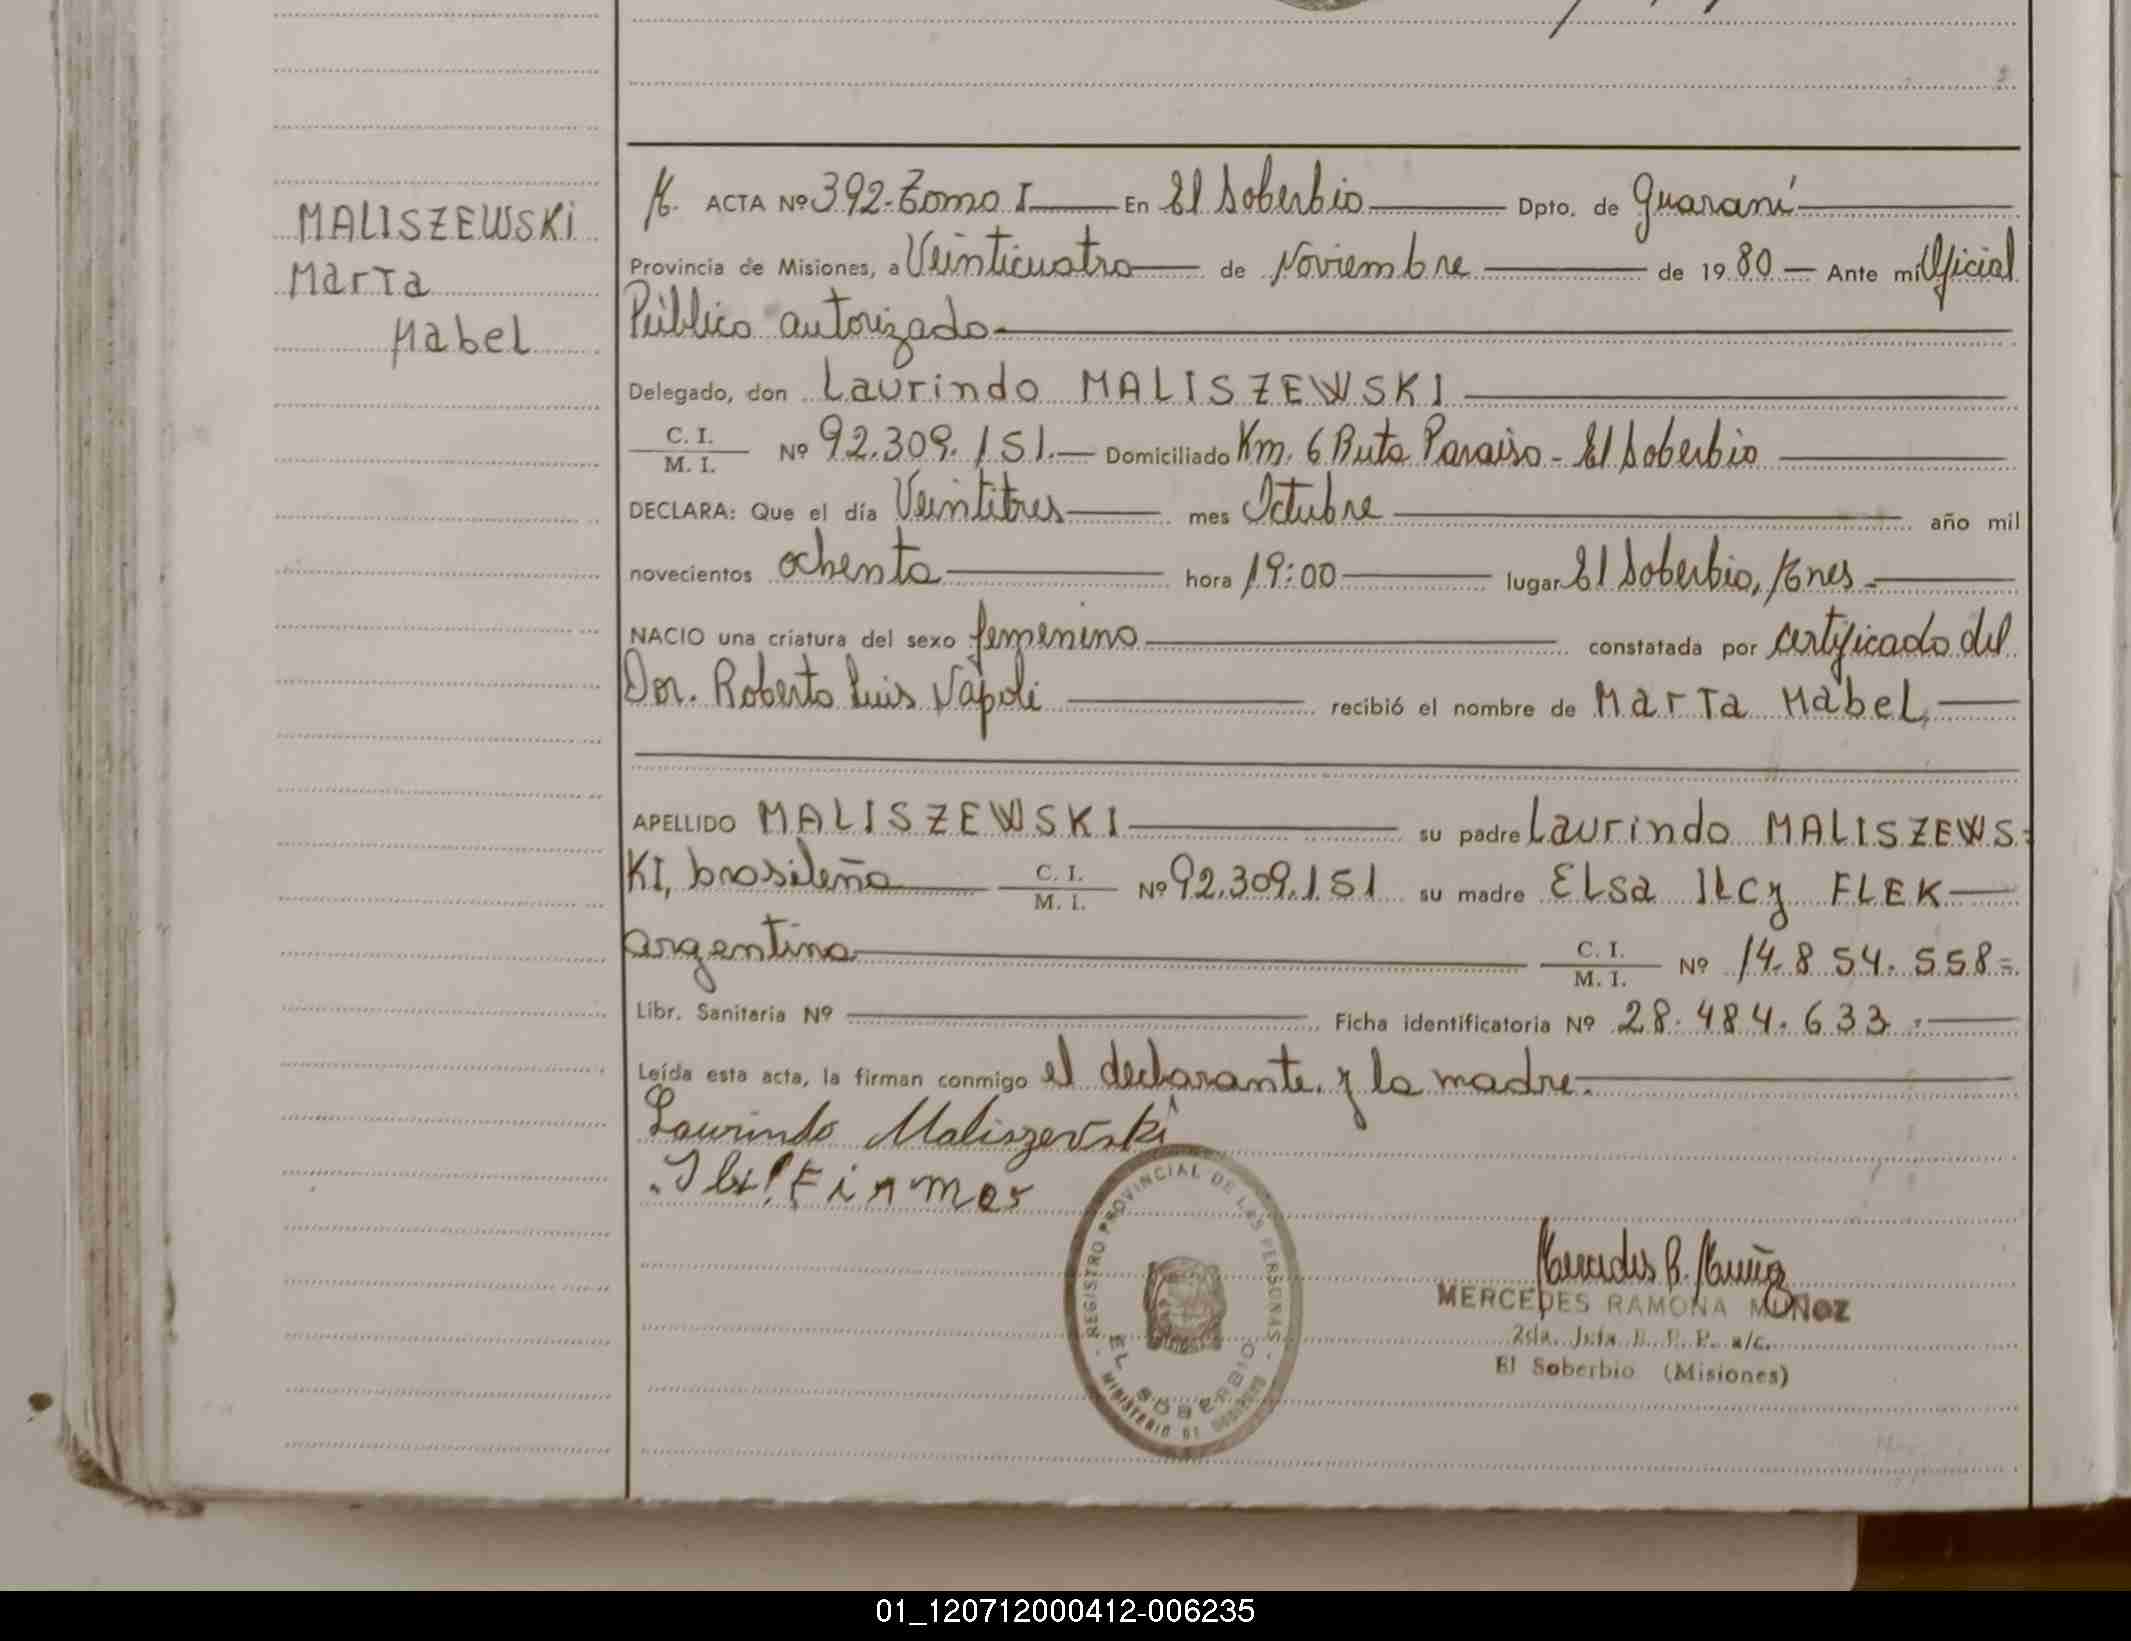 MALISZEWSKI
Marta
Mabel
ACTA Nº 392-Tomo I En El Soberbio Dpto. de Guaraní
Provincia de Misiones, a Veinticuatro de Noviembre de 1980 Ante mi Oficial
Público autorizado
Delegado, don Laurindo MALISZEWSKI
C. I.
M. I. Nº 92.309.151.- Domiciliado Km. 6 Ruta Paraíso - El Soberbio
DECLARA: Que el día Veintitres mes Octubre año mil
novecientos ochenta hora 19:00 lugar El Soberbio,
NACIO una criatura del sexo femenino constatada por certificado del
Dor. Roberto Luis Nápoli recibió el nombre de Marta Mabel,
APELLIDO MALISZEWSKI su padre Laurindo MALISZEWS-
KI, brasileño C. I. M. I. Nº 92.309.151 su madre Elsa Ilcy FLEK
argentina C. I. M. I. Nº 14.854.558-
Libr. Sanitaria Nº Ficha identificatoria Nº 28.484.633.-
Leída esta acta, la firman conmigo el declarante, y la madre.
Laurindo Maliszevski
REGISTRO PROVINCIAL DE LAS PERSONAS
EL SOBERBIO
Mercedes R. Muñoz
MERCEDES RAMONA MUÑOZ
El Soberbio (Misiones)
01_120712000412-006235